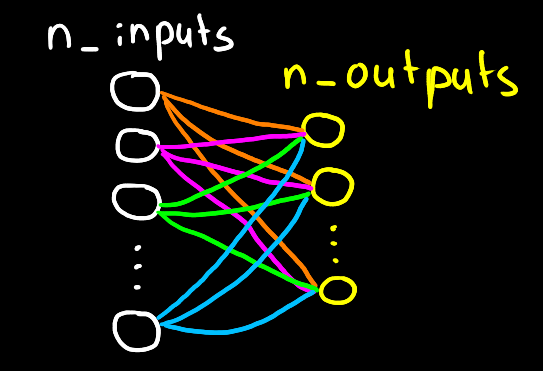 n_inputs
n_outputs